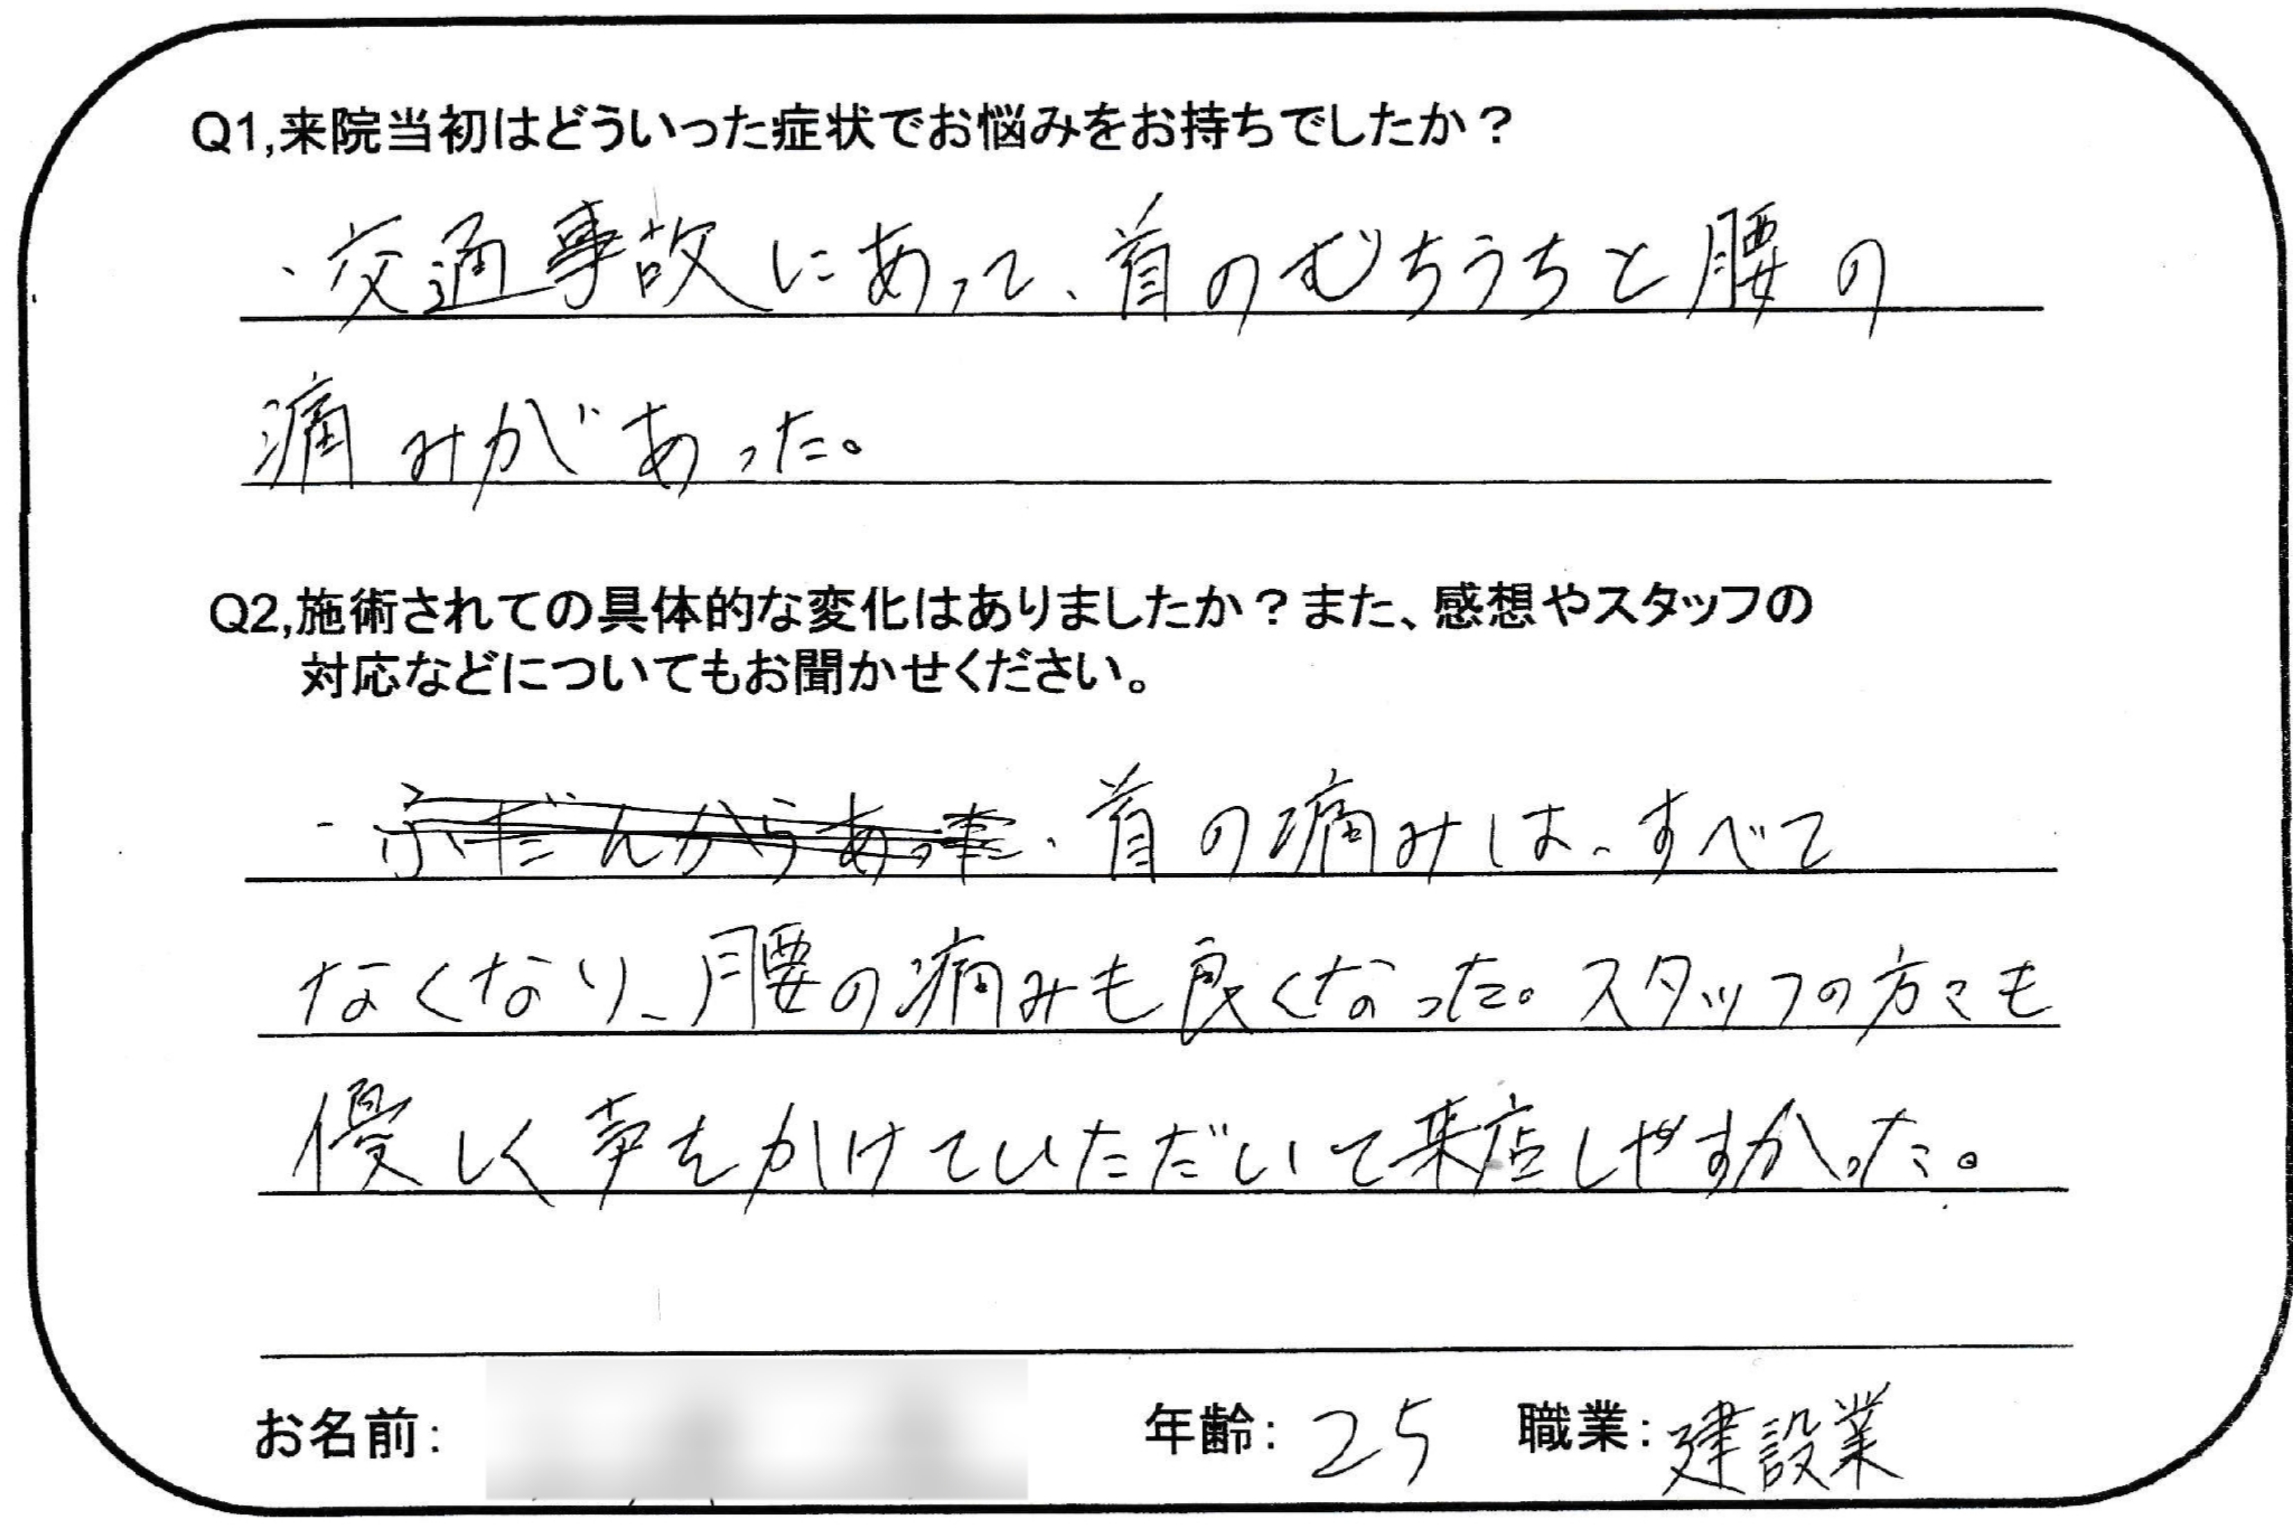 Q1,来院当初はどういった症状でお悩みをお持ちでしたか？
・交通事故にあって、首のむちうちと腰の
痛みがあった。
Q2,施術されての具体的な変化はありましたか？また、感想やスタッフの
対応などについてもお聞かせください。
・首の痛みは、すべて
なくなり、腰の痛みも良くなった。スタッフの方々も
優しく声をかけていただいて来店しやすかった。
お名前: 年齢: 25 職業: 建設業